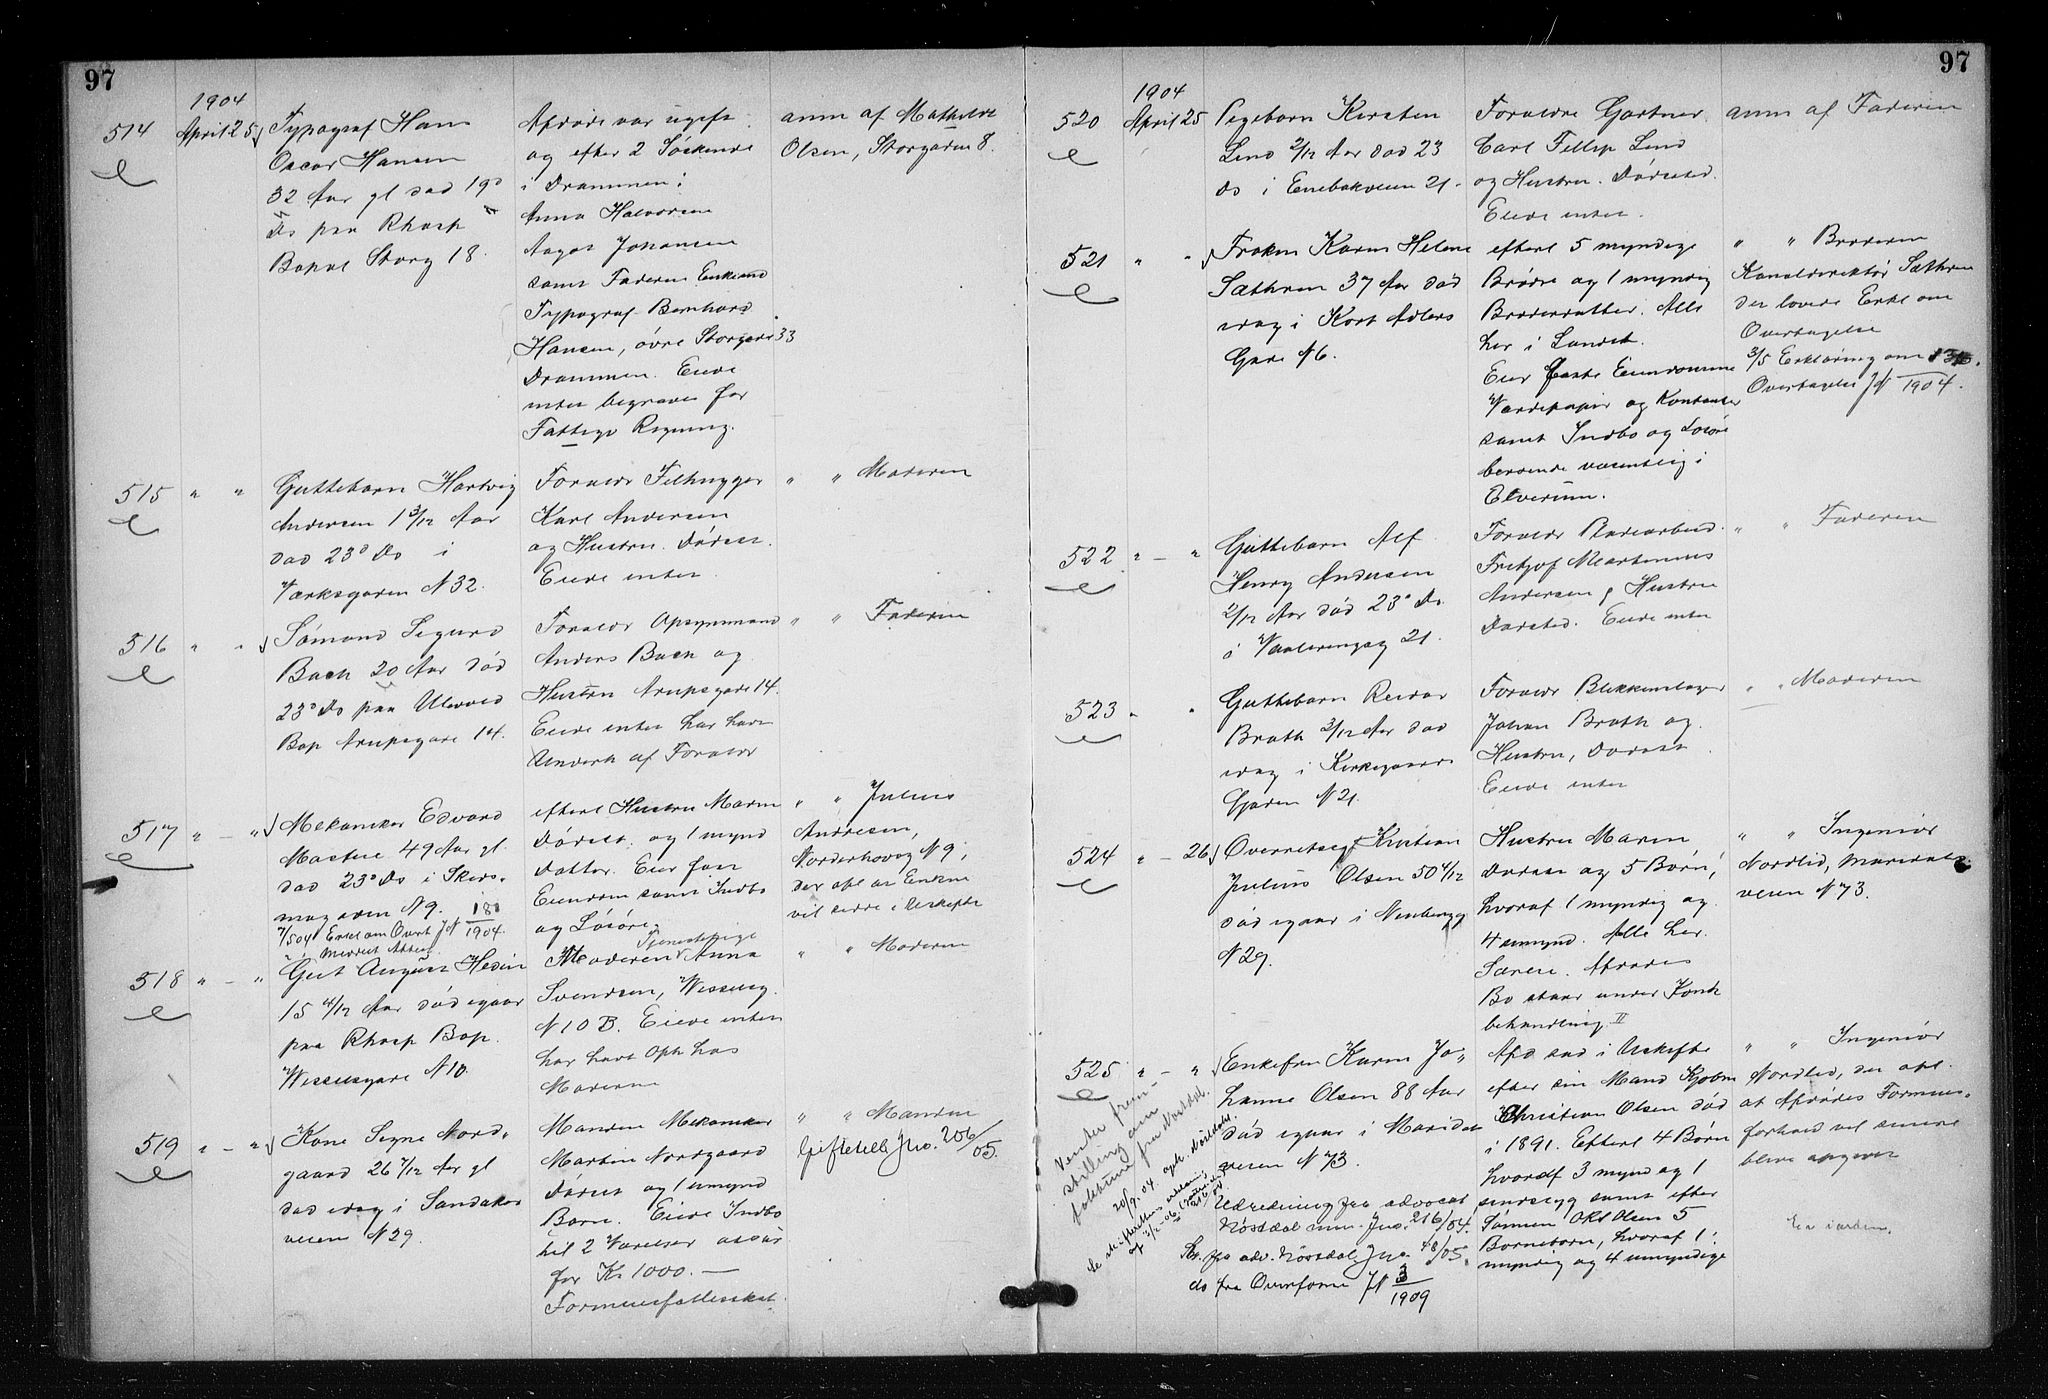 97
1904
514 April 25
Typograf Hans
Oscar Hansen
32 Aar gl død 19d
Ds paa Rhosp
Bopæl Storg 18.
Afdøde var ugift
og efter 2 Søskende
i Drammen:
Anna Halvorsen
Aagot Johansen
samt Faderen Enkemd
Typograf Bernhard
Hansen, övre Storgade 33
Drammen. Eiede
intet begraves for
Fattigv Regning.
anm af Mathilde
Olsen, Storgaden 8.
515 " "
Guttebarn Hartvig
Andersen 1 3/12 Aar
død 23d Ds i
Værksgaden N 32.
Forældr Filhugger
Karl Andersen
og Hustru. Dødsst.
Eiede intet
" " Moderen
516 " "
Sömand Sigurd
Bach 20 Aar död
23d Ds paa Ullevold
Bop Arupsgade 14.
Forældr Opsynsmand
Anders Bach og
Hustru Arupsgade 14.
Eiede intet har havt
Underh af Forældr
" " Faderen
517 " - "
Mekaniker Edvard
49 Aar gl.
død 23d Ds i
N 9.
7/5 04 Erkl om Overt JN 181/1904.
efterl Hustru Maren
Dødsst. og 1 mynd
Datter. Eier fast
Eiendom samt Indbo
og Lösöre.
" " Julius
Andresen,
Norderhovg N 9,
der opl at Enken
vil sidde i Uskifte
518 " - "
Gut August Hedin
15 4/12 Aar död igaar
paa Rhosp Bop.
Wesselsgade N 10.
Moderen Tjenestepige Anna
Svendsen, Wesselsg.
N 10 B. Eiede intet
har havt Oph hos
Moderen
" " Moderen
519 " - "
Kone Signe Nord-
gaard 26 7/12 Aar gl
død idag i Sandaker
veien N 29.
Manden Mekaniker
Martin Nordgaard
Dødsst og 1 umynd
Barn. Eiede Indbo
til 2 Værelser assur
for Kr 1000. —
Formuesfællesskab.
" " Manden
Giftetill. Jno. 206/05.
97
1904
520 April 25
Pigebarn Kirsten
Lind 2/12 Aar død 23
ds i Enebakveien 21.
Forældre Gartner
Carl Fillip Lind
og Hustru. Dödssted.
Eiede intet.
anm af Faderen
521 " "
Frøken Karen Helene
Sæthren 37 Aar død
idag i Kort Adlers
Gade N 6.
efterl 5 myndige
Brødre og 1 myndig
Broderdatter. Alle
her i Landet.
Eier faste Eiendomme
Værdipapir og Kontanter
samt Indbo og Lösöre
beroende væsentlig i
Elverum.
" " Broderen
Kanaldirektör Sæthren
der lovede Erkl om
Overtagelse
3/5 Erklæring om
Overtagelse JN 1904.
522 " - "
Guttebarn Alf
Henry Andersen
2/12 Aar död 23d Ds.
i Vaalerengag 21.
Forældr
Fritjof Martinius
Andersen & Hustru
Dødssted. Eiede intet
" " Faderen
523 " "
Guttebarn Reidar
Brath 3/12 Aar død
idag i Kirkegaards
Gaden N 21.
Forældr Blikkenslager
Johan Brath og
Hustru, Dødsst.
Eiede intet
" " Moderen
524 " - 26
Overretssagf Kristian
Julius Olsen 50 4/12
död igaar i Neubergg
N 29.
Hustru Maren
Dødsst og 5 Börn,
hvoraf 1 myndig og
4 umynd. Alle her.
Særeie. Afdødes
Bo staar under Konk
behandling II
" " Ingeniör
Nordlid, Maridals
veien N 73.
525 " - "
Enkefru Karen Jo-
hanne Olsen 88 Aar
död igaar i Maridals
veien N 73.
Udredning fra advocat
Nösdal mm. Jno. 216/04.
Skr. fra adv. Nösdal Jno 48/05.
do fra Overform JN 3/1909
Afd sad i Uskifte
efter sin Mand Kjöbm
Christian Olsen död
i 1891. Efterl 4 Börn
hvoraf 3 mynd og 1
sindssyg samt efter
Sønnen Olsen 5
Børnebörn, hvoraf 1
myndig og 4 umyndige
" " Ingeniör
Nordlid, der opl.
at Afdødes Formues-
forhold vil senere
blive opgivet
Venter frem-
stilling om
fra Nösdal.